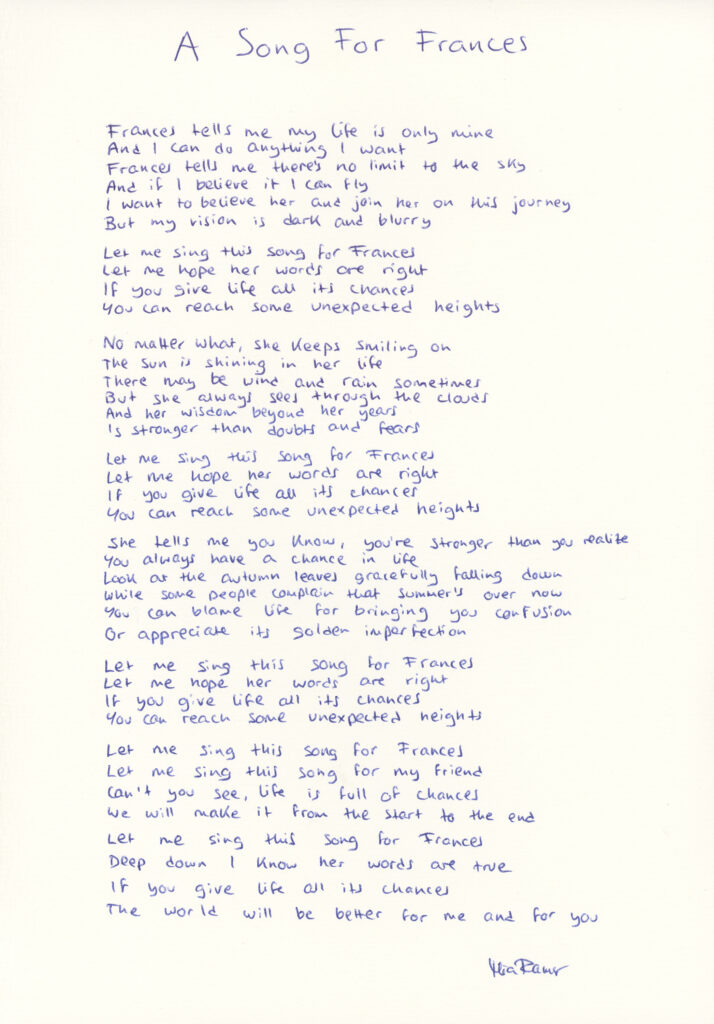 A Song For Frances
Frances tells me my life is only mine
And I can do anything I want
Frances tells me there's no limit to the sky
And if I believe it I can fly
I want to believe her and join her on this journey
But my vision is dark and blurry
Let me sing this song for Frances
Let me hope her words are right
If you give life all its chances
You can reach some unexpected heights
No matter what, she keeps smiling on
The sun is shining in her life
There may be wind and rain sometimes
But she always sees through the clouds
And her wisdom beyond her years
Is stronger than doubts and fears
Let me sing this song for Frances
Let me hope her words are right
If you give life all its chances
You can reach some unexpected heights
She tells me you know, you're stronger than you realize
You always have a chance in life
Look at the autumn leaves gracefully falling down
While some people complain that summer's over now
You can blame life for bringing you confusion
Or appreciate its golden imperfection
Let me sing this song for Frances
Let me hope her words are right
If you give life all its chances
You can reach some unexpected heights
Let me sing this song for Frances
Let me sing this song for my friend
Can't you see, life is full of chances
We will make it from the start to the end
Let me sing this song for Frances
Deep down I know her words are true
If you give life all its chances
The world will be better for me and for you